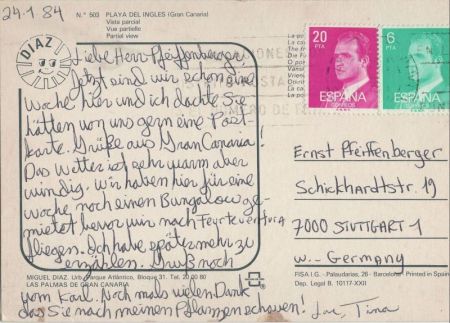 24.1.84
N.° 503 PLAYA DEL INGLES (Gran Canaria)
Vista parcial
Vue partielle
Partial view
DIAZ
Liebe Herr Pfeiffenberger
Jetzt sind wir schon eine
Woche hier und ich dachte Sie
hätten von uns gern eine Post-
karte. Grüße aus Gran Canaria!
Das Wetter ist sehr warm aber
windig. Wir haben hier für eine
woche noch einen Bungalow ge-
mietet bevor wir nach Feurteventura
fliegen. Ich habe später mehr zu
erzählen. Gruß noch
vom Karl. Noch mals vielen Dank
das Sie nach meinen Pflanzen schauen! Love, Tina
20
PTA
ESPAÑA
CORREOS
6
PTA
ESPAÑA
Ernst Pfeiffenberger
Schickhardtstr. 19
7000 STUTTGART 1
W.- Germany
MIGUEL DIAZ. Urb. Parque Atlántico, Bloque 31. Tel. 20 00 80
LAS PALMAS DE GRAN CANARIA
FISA I.G. - Palaudarias, 26 - Barcelona - Printed in Spain
Dep. Legal B. 10117-XXII